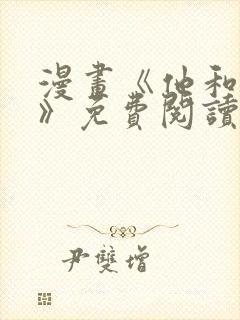 漫畫《他和
》免費閱讀
尹雙增